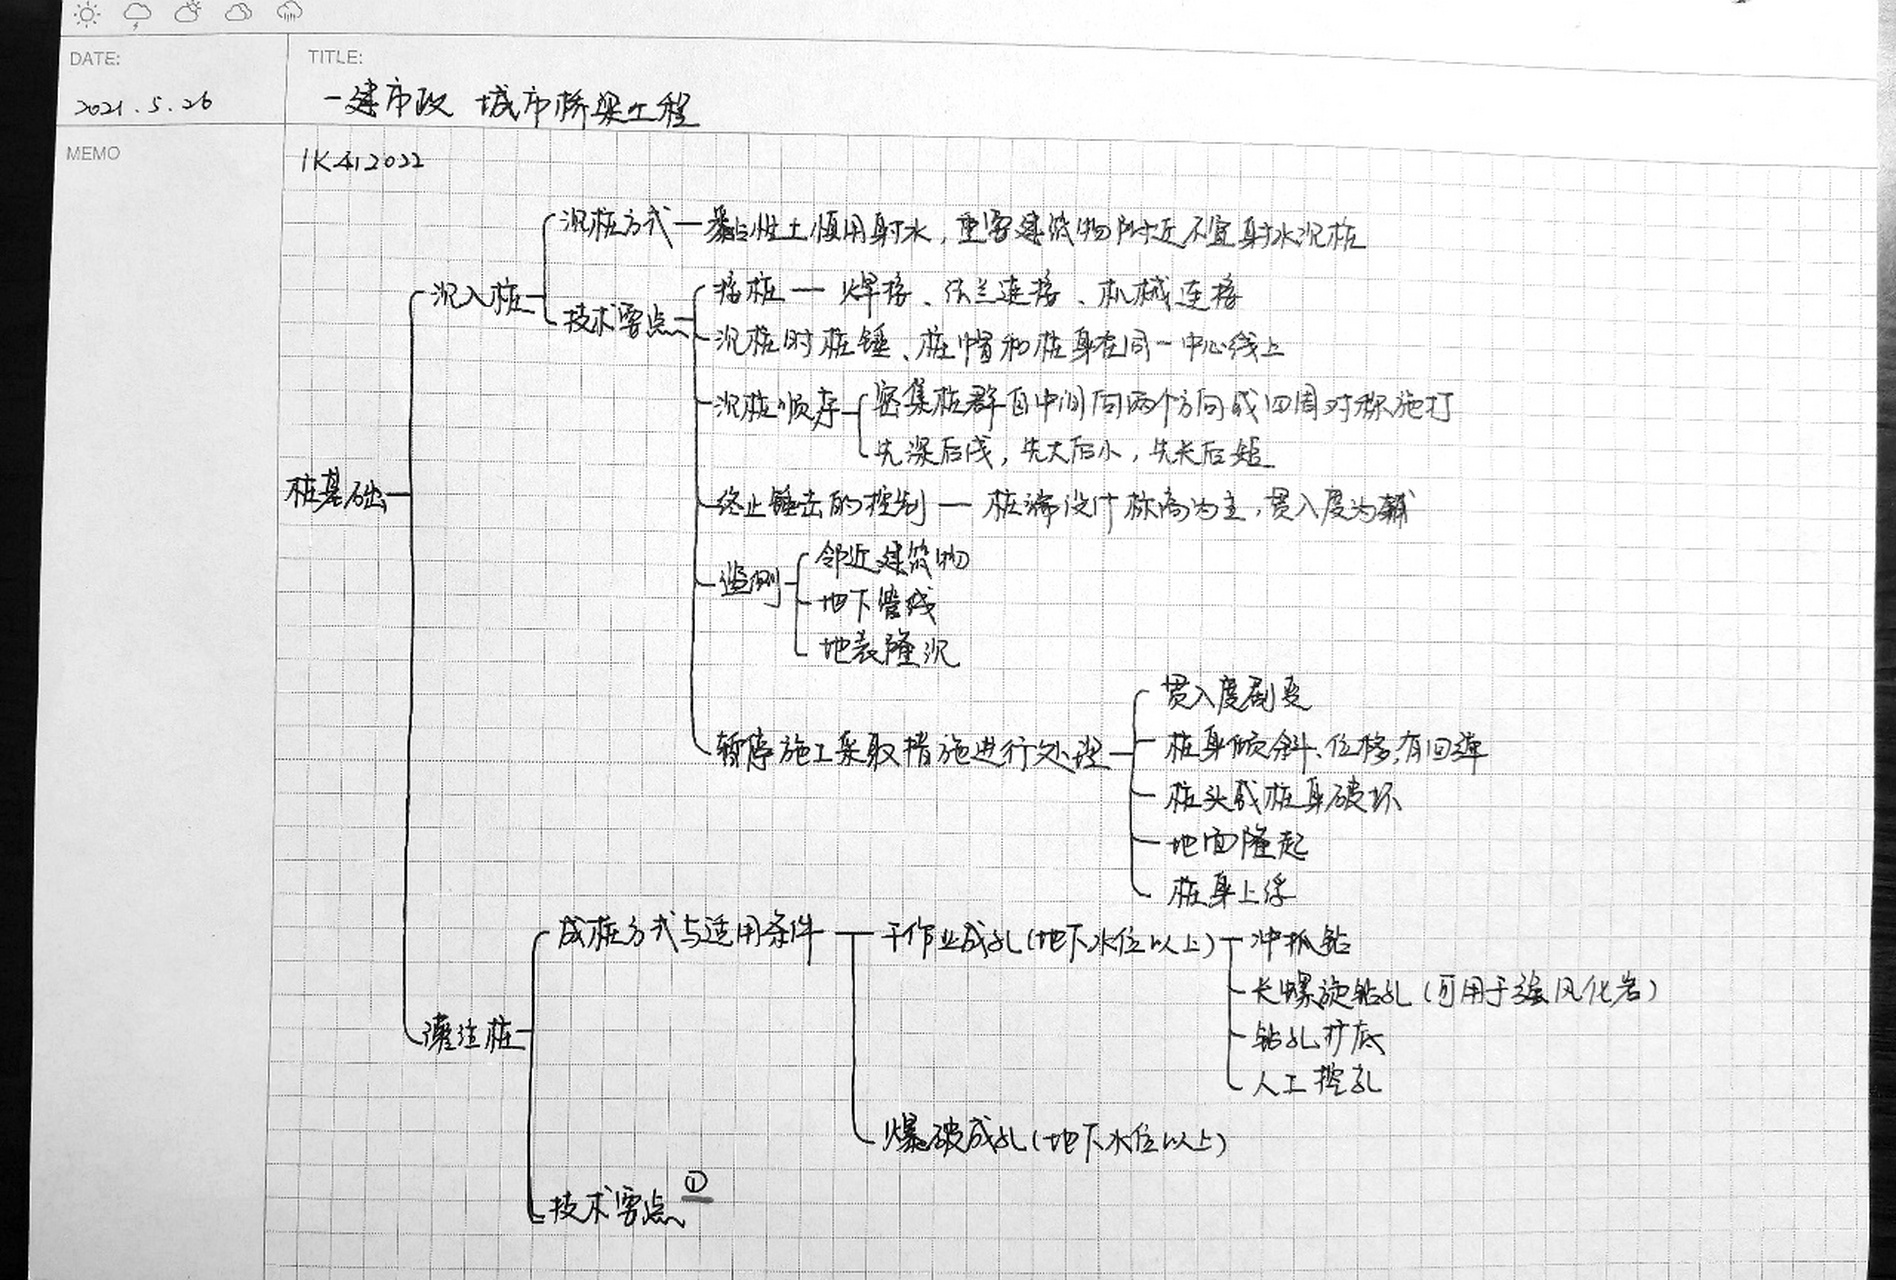 DATE:
TITLE:
2021.5.26
一建市政 城市桥梁工程
MEMO
1K412022
沉桩方式 — 黏性土慎用射水，重要建筑物附近不宜射水沉桩
沉入桩
接桩 — 焊接、法兰连接、机械连接
技术要点
沉桩时桩锤、桩帽和桩身在同一中心线上
沉桩顺序
密集桩群自中间向两个方向或四周对称施打
先深后浅，先大后小，先长后短
桩基础
终止锤击的控制 — 桩端设计标高为主，贯入度为辅
监测
邻近建筑物
地下管线
地表隆沉
贯入度剧变
暂停施工采取措施进行处理
桩身倾斜、位移，有回弹
桩头或桩身破坏
地面隆起
桩身上浮
成桩方式与适用条件
干作业成孔(地下水位以上)
冲抓钻
长螺旋钻孔(可用于强风化岩)
灌注桩
钻孔扩底
人工挖孔
爆破成孔(地下水位以上)
技术要点 ①